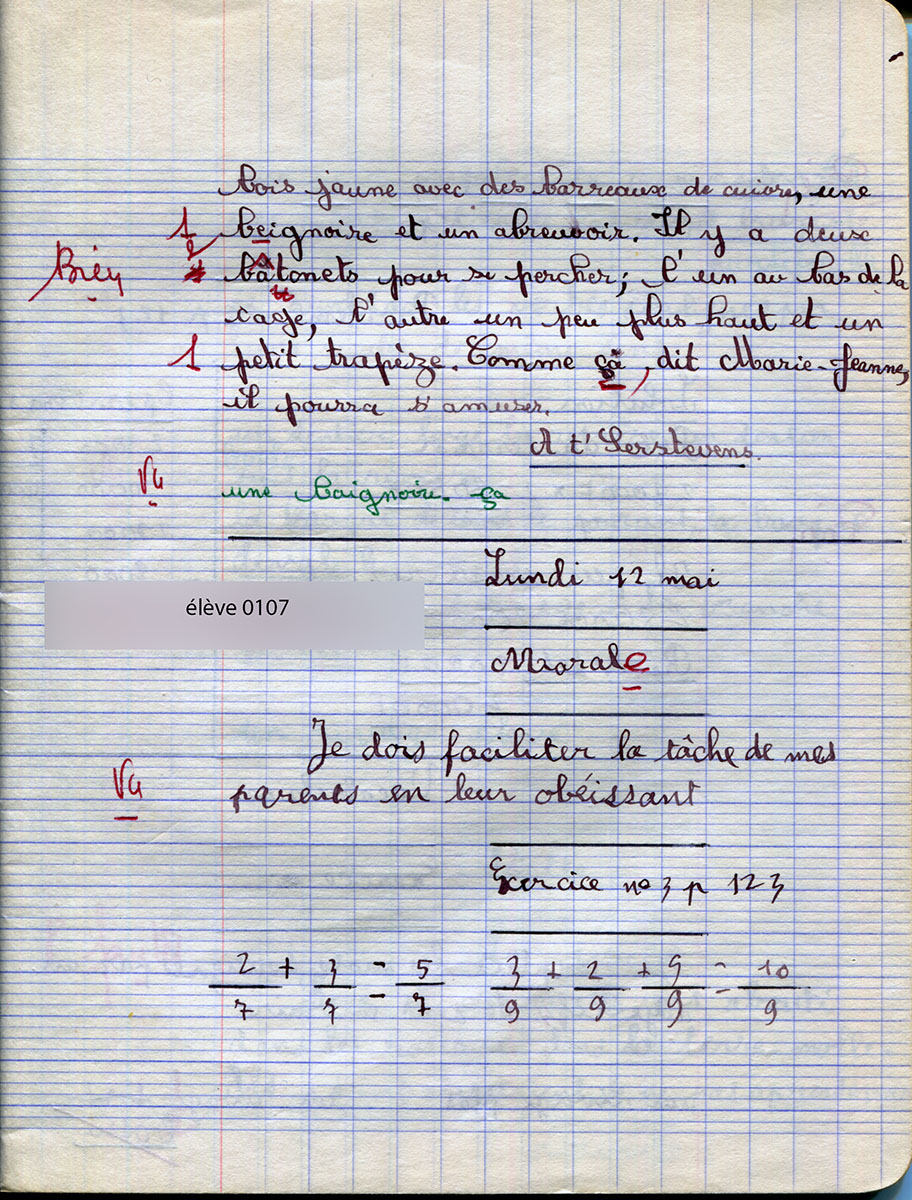 bois jaune avec des barreaux de cuivre, une
1 beignoire et un abreuvoir. Il y a deux
Bien bâtonets pour se percher; l'un au bas de la
tt
cage, l'autre un peu plus haut et un
1 petit trapèze. Comme çà, dit Marie-Jeanne,
il pourra s'amuser.
A t'Serstevens.
Vu une baignoire. ça
Lundi 12 mai
élève 0107
Morale
Je dois faciliter la tâche de mes
Vu parents en leur obéissant
Exercice no 3 p 123
2/7 + 3/7 = 5/7 3/9 + 2/9 + 5/9 = 10/9